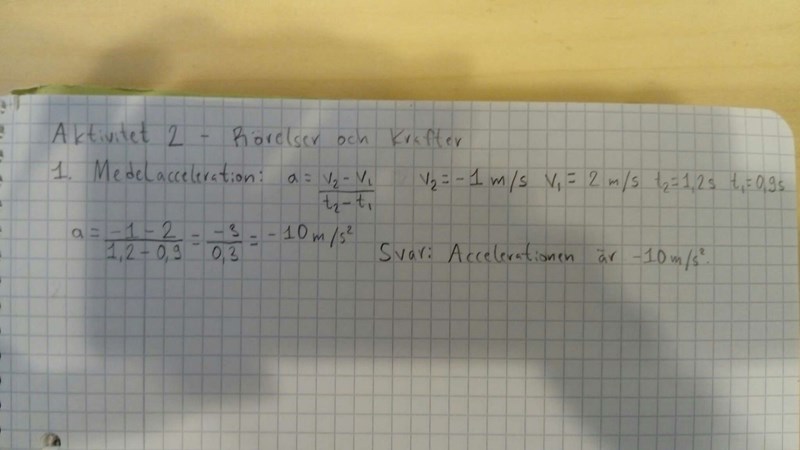 Aktivitet 2 - Rörelser och Krafter
1. Medelacceleration: a = (v₂ - v₁)/(t₂ - t₁) v₂ = -1 m/s v₁ = 2 m/s t₂ = 1,2s t₁ = 0,9s
a = (-1 - 2)/(1,2 - 0,9) = -3/0,3 = -10 m/s²
Svar: Accelerationen är -10 m/s².